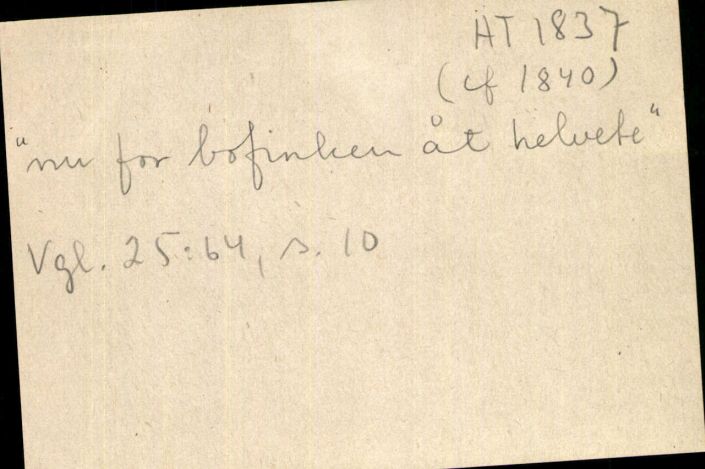 AT 1837
(cf 1840)
"nu for bofinken åt helvete"
Vgl. 25:64, s. 10